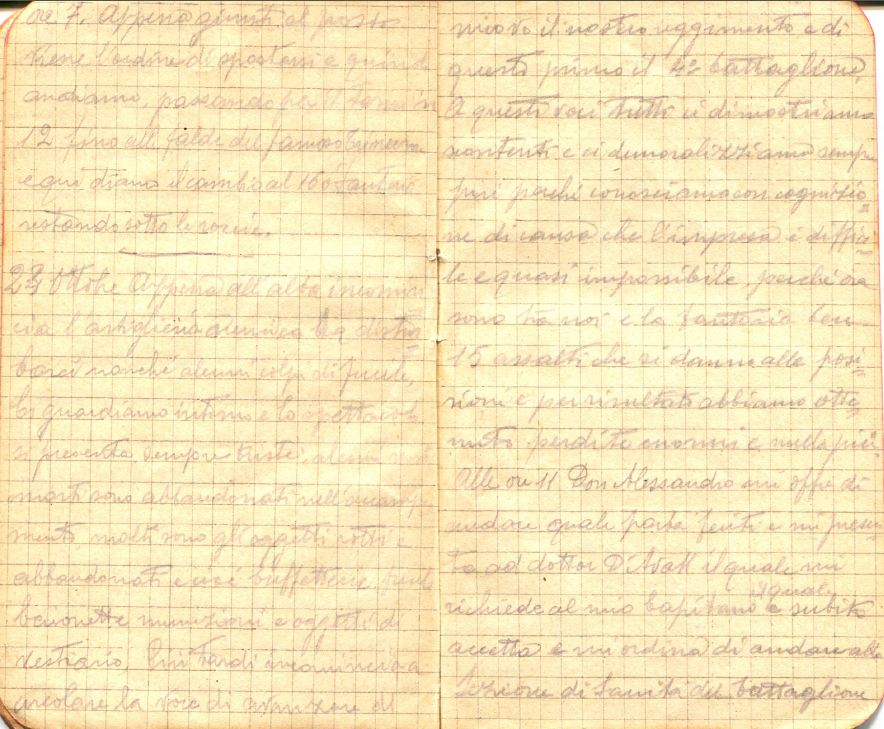 ore 7. Appena giunti al posto
viene l'ordine di spostarsi e quindi
andiamo, passando per il
12 fino alle falde del famoso
e qui diamo il cambio al 160 fanteria
restando sotto le roccie.
23 Ottobre Appena all'alba incomin
cia l'artiglieria nemica a distur
barci nonché alcuni colpi di fucile,
ci guardiamo intorno e lo spettacolo
si presenta sempre triste, alcuni
morti sono abbandonati nell'accampa
mento, molti sono gli oggetti rotti e
abbandonati e cioè buffetterie, fucili
baionette munizioni e oggetti di
vestiario. Più tardi incomincia a
circolare la voce di avanzare di
nuovo il nostro reggimento e di
questo primo il 4º battaglione.
A questi voci tutti ci dimostriamo
scontenti e ci demoralizziamo semp
più perché conosciamo con cognizio
ne di causa che l'impresa è diffici
le e quasi impossibile, perché ora
sono tra noi e la fanteria ben
15 assalti che si danno alle posi
zioni e per risultato abbiamo otte
nuto perdite enormi e nulla più.
Alle ore 11 Don Alessandro mi offre di
andare quale porta feriti e mi presen
ta al dottor il quale mi
richiede al mio Capitano il quale e subito
accetta e mi ordina di andare alla
Sezione di Sanità del battaglione